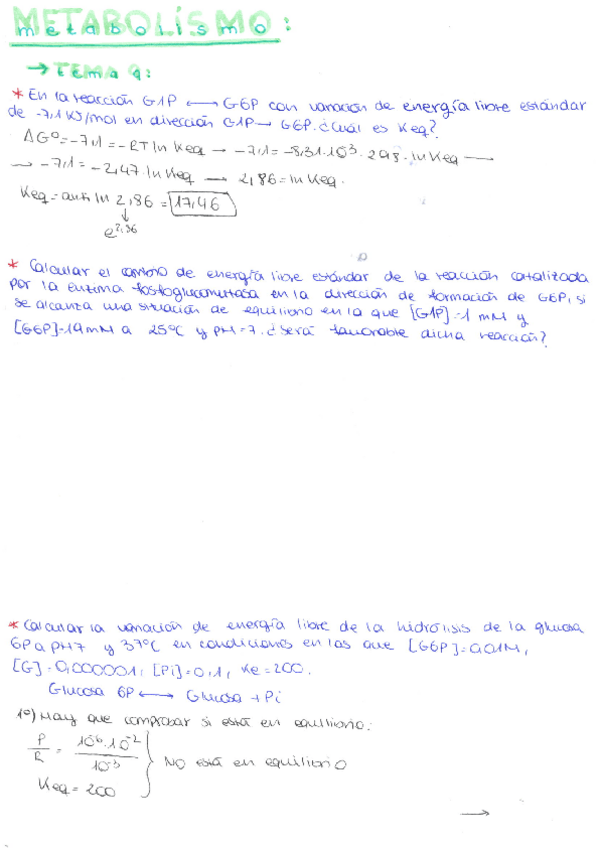 METABOLISMO:
metabolismo
→ TEMA 9:
* En la reacción G1P ⟷ G6P con variación de energía libre estándar
de -7,1 KJ/mol en dirección G1P → G6P. ¿Cuál es Keq?
ΔGº=-7,1 = -RT ln Keq → -7,1 = -8,31·10⁻³·298·ln Keq →
→ -7,1 = -2,47·ln Keq → 2,86 = ln Keq.
Keq = anti ln 2,86 = 17,46
↓
e^2,86
* Calcular el cambio de energía libre estándar de la reacción catalizada
por la enzima fosfoglucomutasa en la dirección de formación de G6P, si
se alcanza una situación de equilibrio en la que [G1P]=1 mM y
[G6P]=19mM a 25ºC y pH=7. ¿Será favorable dicha reacción?
* Calcular la variación de energía libre de la hidrólisis de la glucosa
6P a pH7 y 37ºC en condiciones en las que [G6P]=0,01M,
[G]=0,000001, [Pi]=0,1, Ke=200.
Glucosa 6P ⟷ Glucosa + Pi
1º) Hay que comprobar si está en equilibrio:
P/R = 10⁻⁶·10⁻²/10⁻³ } NO está en equilibrio
Keq = 200
→